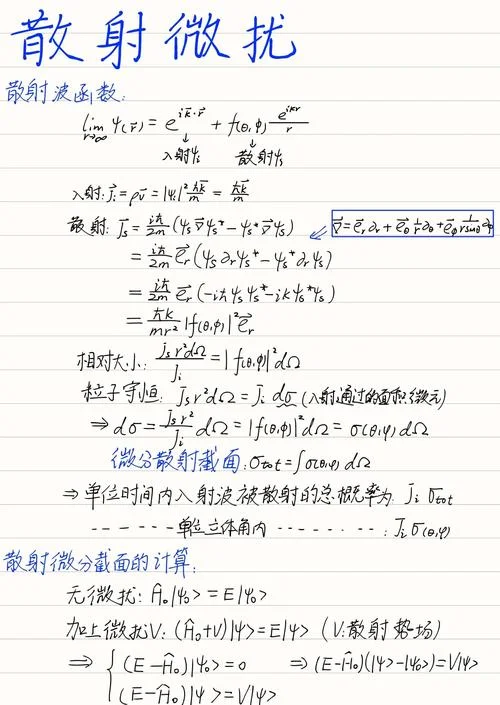 散射微扰
散射波函数:
lim_{r→∞} ψ(r⃗) = e^{ik⃗·r⃗} + f(θ,φ) e^{ikr}/r
↓ ↓
入射ψ_i 散射ψ_s
入射: J⃗_i = ρv⃗ = |ψ_i|² ħk⃗/m = ħk⃗/m
散射: J⃗_s = iħ/2m (ψ_s ∇⃗ψ_s* − ψ_s* ∇⃗ψ_s) ∇⃗ = e⃗_r ∂_r + e⃗_θ 1/r ∂_θ + e⃗_φ 1/(r sinθ) ∂_φ
= iħ/2m e⃗_r (ψ_s ∂_r ψ_s* − ψ_s* ∂_r ψ_s)
= iħ/2m e⃗_r (−ik ψ_s ψ_s* − ik ψ_s* ψ_s)
= ħk/mr² |f(θ,φ)|² e⃗_r
相对大小: J_s r² dΩ / J_i = |f(θ,φ)|² dΩ
粒子守恒: J_s r² dΩ = J_i dσ (入射通过的面积微元)
⇒ dσ = J_s r²/J_i dΩ = |f(θ,φ)|² dΩ = σ(θ,φ) dΩ
微分散射截面: σ_tot = ∫σ(θ,φ) dΩ
⇒ 单位时间内入射波被散射的总概率为: J_i σ_tot
------ 单位立体角内 --------: J_i σ(θ,φ)
散射微分截面的计算:
无微扰: Ĥ₀|ψ₀> = E|ψ₀>
加上微扰V: (Ĥ₀+V)|ψ> = E|ψ> (V:散射势场)
⇒ { (E−Ĥ₀)|ψ₀> = 0 ⇒ (E−Ĥ₀)(|ψ>−|ψ₀>) = V|ψ>
(E−Ĥ₀)|ψ> = V|ψ>